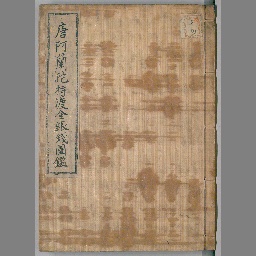 唐阿蘭陀持渡金銀銭図鑑